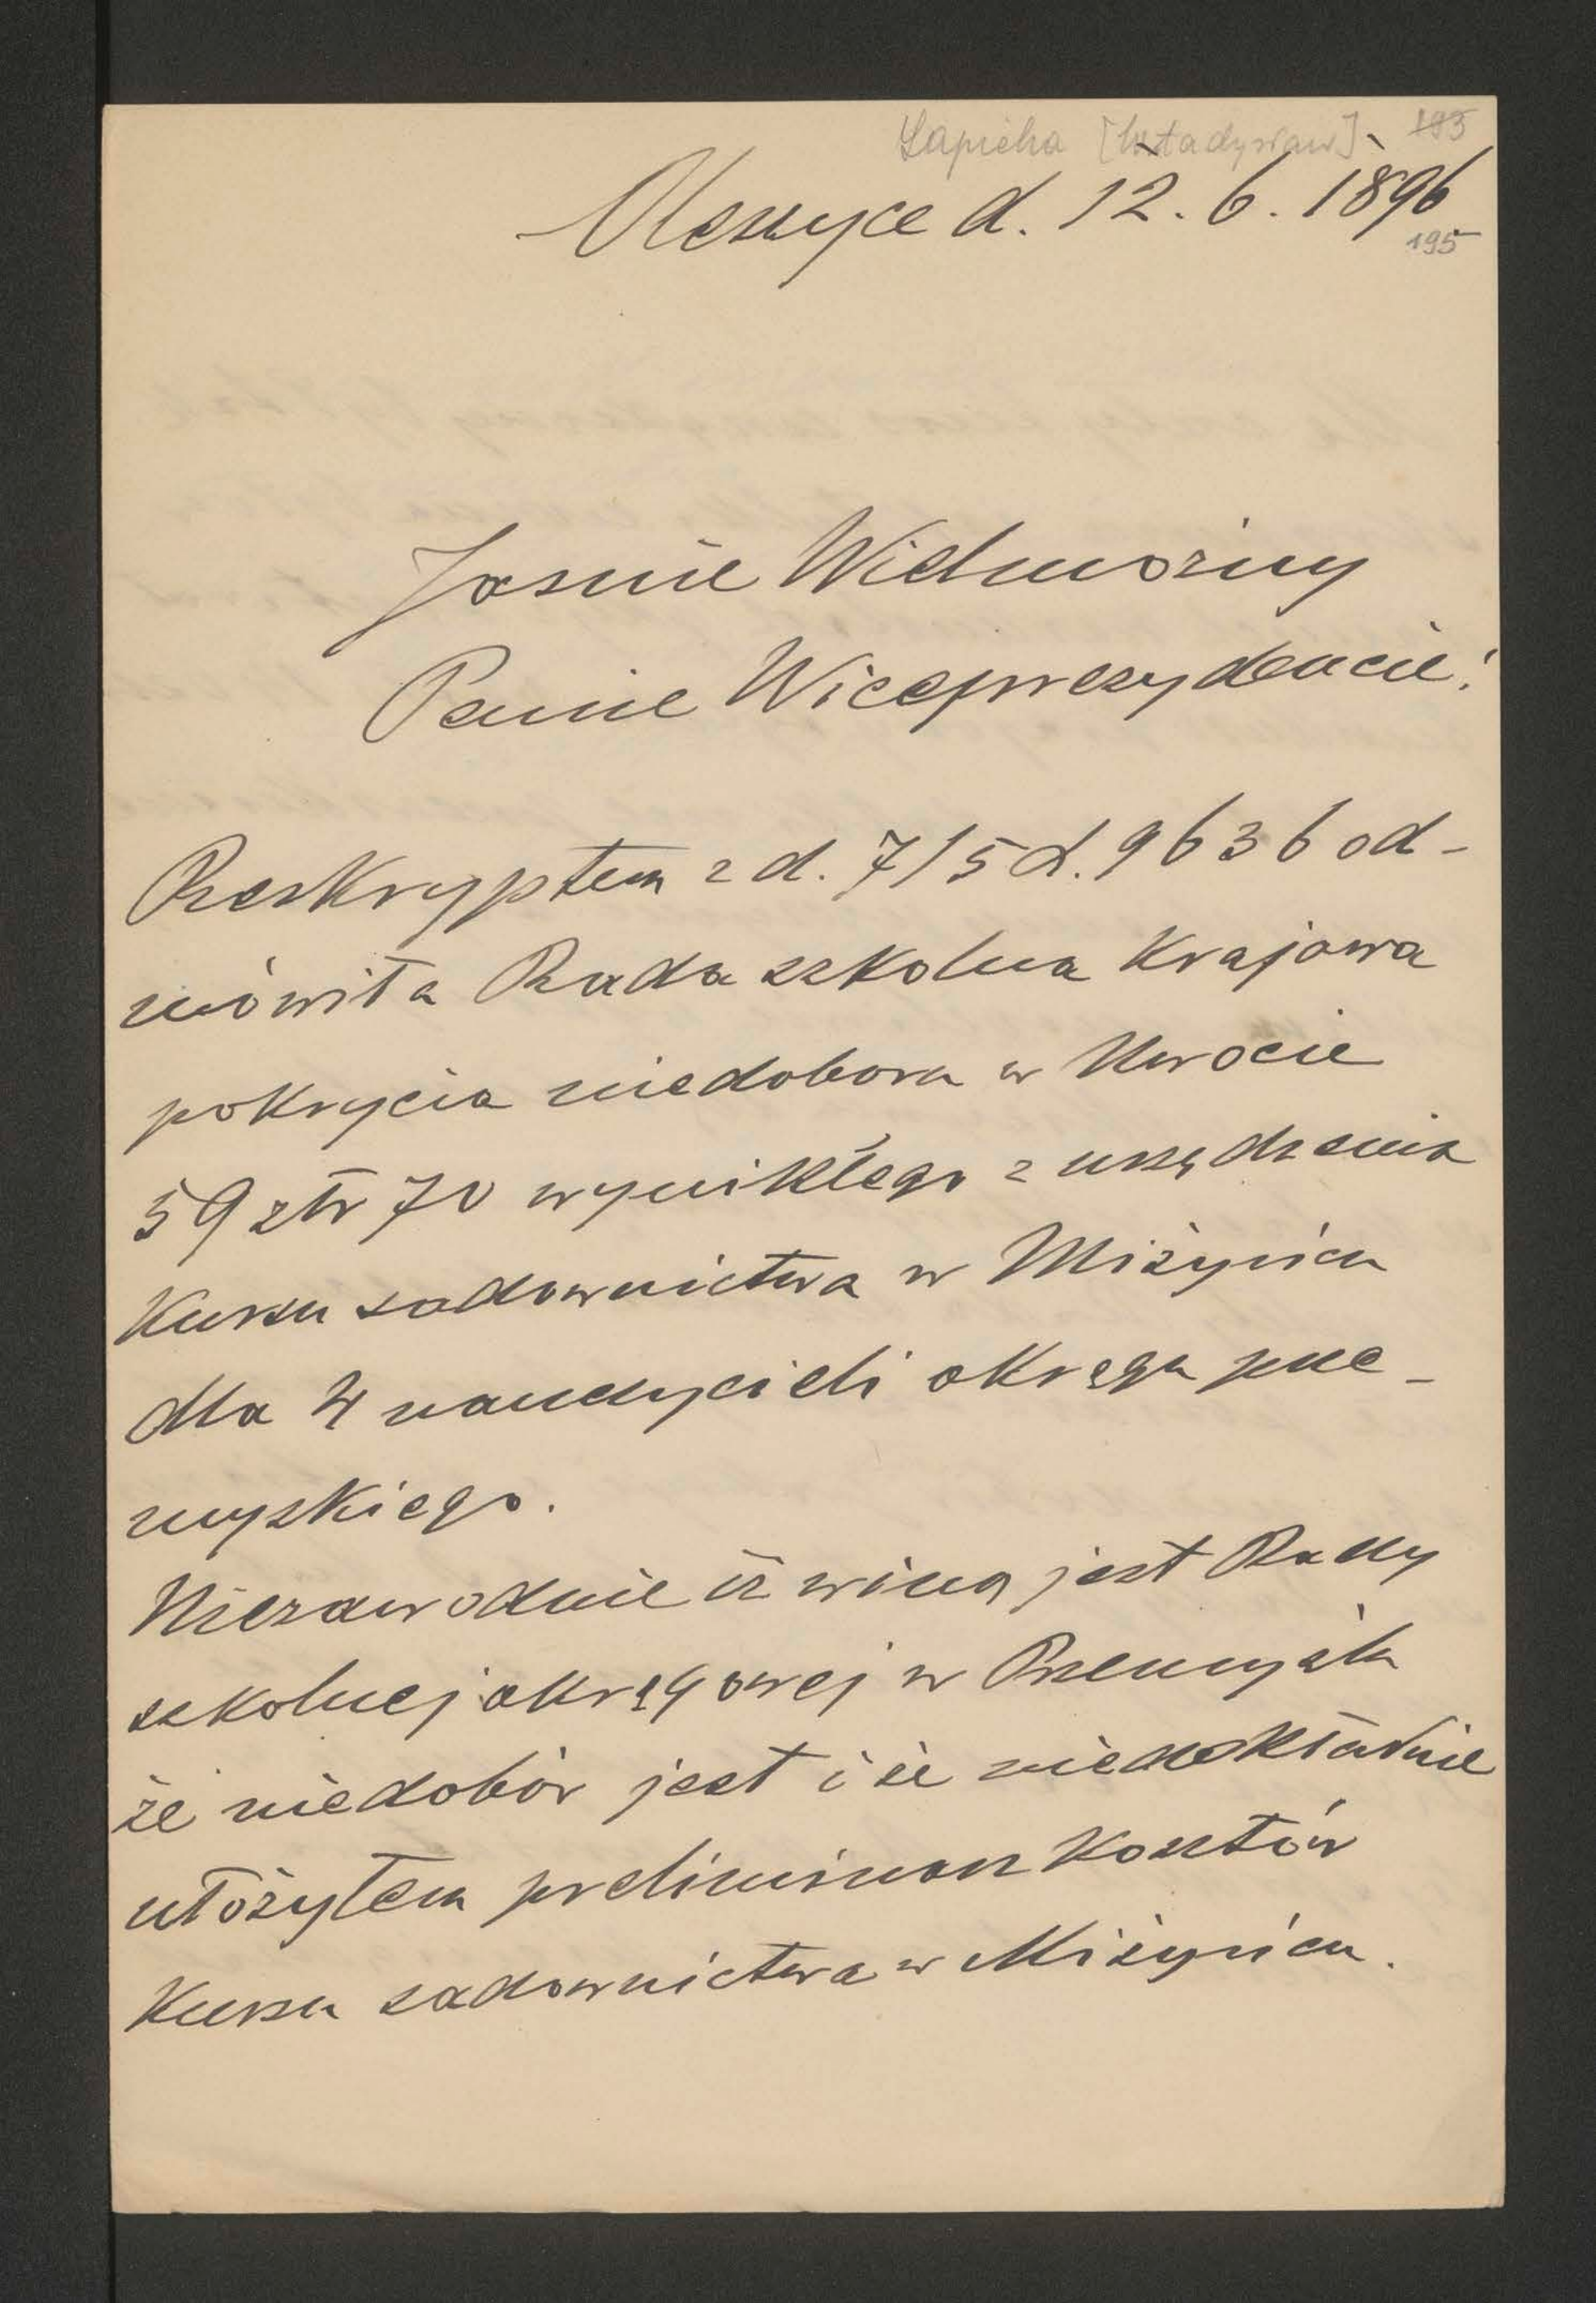 Sapieha [Władysław] 193
Oleszyce d. 12. 6. 1896
195
Jaśnie Wielmożny
Panie Wiceprezydencie!
Reskryptem z d. 7/5 L. 9636 od-
mówiła Rada szkolna Krajowa
pokrycia niedoboru w Kwocie
59 złr 70 wynikłego z urządzenia
Kursu sadownictwa w Miżyńcu
dla 4 nauczycieli okręgu prze-
myskiego.
Niezawodnie iż winą jest Rady
szkolnej okręgowej w Przemyślu
że niedobór jest i że niedokładnie
ułożyłem preliminarz kosztów
Kursu sadownictwa w Miżyńcu.